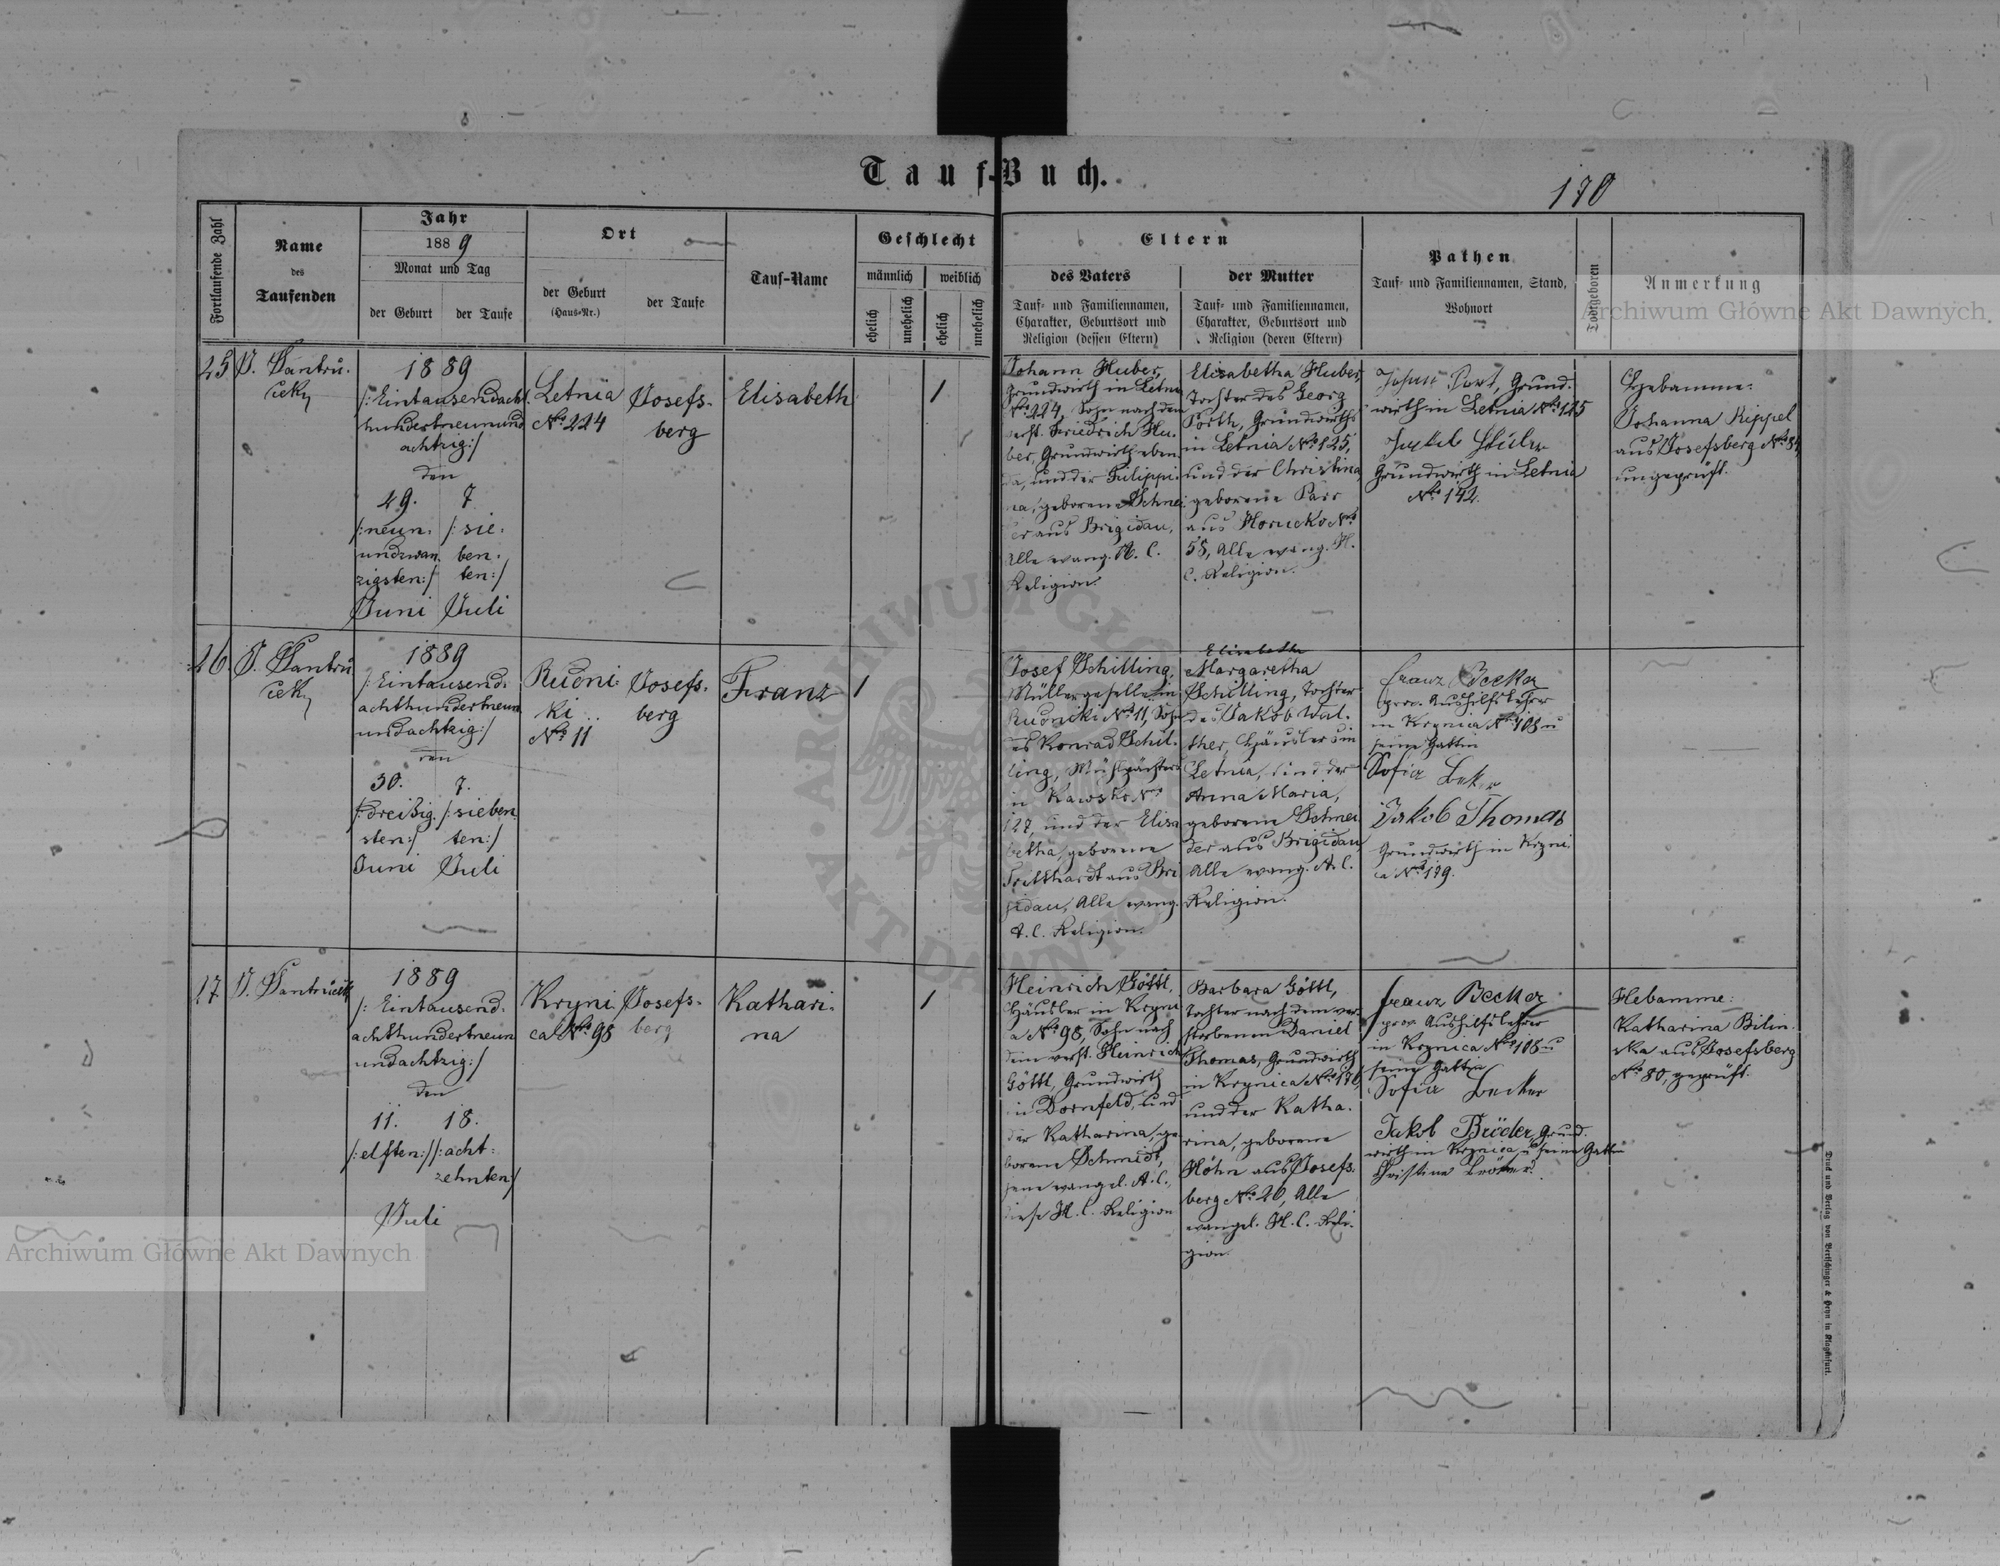 Tauf-Buch.
170
Fortlaufende Zahl
Name
des
Taufenden
Jahr
1889
Monat und Tag
der Geburt
der Taufe
Ort
der Geburt
(Haus-Nr.)
der Taufe
Tauf-Name
Geschlecht
männlich
weiblich
ehelich
unehelich
ehelich
unehelich
Eltern
des Vaters
Tauf- und Familiennamen,
Charakter, Geburtsort und
Religion (dessen Eltern)
der Mutter
Tauf- und Familiennamen,
Charakter, Geburtsort und
Religion (deren Eltern)
Pathen
Tauf- und Familiennamen, Stand,
Wohnort
Todtgeboren
Anmerkung
25
J. Santru-
cek
1889
/: Eintausendacht
hundertneunund
achtzig :/
den
29.
/: neun-
undzwan
zigsten :/
Juni
7
/: sie-
ben-
ten :/
Juli
Letnia
No 224
Josefs-
berg
Elisabeth
1
Johann Huber,
Grundwirth in Letnia
No 224, Sohn nach dem
verst. Friedrich Hu-
ber, Grundwirth eben
da, und der Filippi-
na, geborene Schnei
der aus Brigidau,
Alle evang. H. C.
Religion.
Elisabetha Huber,
Tochter des Georg
Porth, Grundwirths
in Letnia No 125,
und der Christina,
geborene
aus Horucko No
55, Alle evang. H.
C. Religion.
Grund-
wirth in Letnia No 125
Jakob
Grundwirth in Letnia
No 142.
Hebamme:
Johanna Rippel
aus Josefsberg No 84,
ungeprüft.
26.
J. Santru
cek
1889
/: Eintausend-
achthundertneun
undachtzig :/
den
30.
/: dreißig-
sten :/
Juni
7.
/: sieben
ten :/
Juli
Rudni-
ki
No 11
Josefs-
berg
Franz
1
Josef Schilling,
Müllergeselle in
Rudniki No 11, Sohn
des Konrad Schil-
ling, Mühlpächters
in Kawsko No
127, und der Elisa
betha, geborene
aus Bri
gidau, Alle evang.
A. C. Religion.
Elisabetha
Margaretha
Schilling, Tochter
des Jakob Wal-
ther, Häuslers in
Letnia, und der
Anna Maria,
geborene Schnei
der aus Brigidau
Alle evang. A. C.
Religion.
Franz Becker
prov. Aushilfslehrer
in Krynica No 108 u
seine Gattin
Sofia
Jakob Thomas
Grundwirth in Kryni
ca No 199.
27
J. Santrucek
1889
/: Eintausend-
achthundertneun
undachtzig :/
den
11.
/: elften :/
18.
/: acht-
zehnten :/
Juli
Kryni
ca No 98
Josefs-
berg
Kathari-
na
1
Heinrich Göttl,
Häusler in Kryni
ca No 98, Sohn nach
dem verst. Heinrich
Göttl, Grundwirth
in Dornfeld, und
der Katharina, ge
borene Schmidt,
jene evangel. A. C.,
diese H. C. Religion
Barbara Göttl,
Tochter nach dem ver-
storbenen Daniel
Thomas, Grundwirth
in Krynica No 176,
und der Katha-
rina, geborene
Höhn aus Josefs-
berg No 20, Alle
evangel. H. C. Reli-
gion.
Franz Becker
prov. Aushilfslehrer
in Krynica No 108 u
seine Gattin
Sofia Becker
Jakob Bröder, Grund-
wirth in Krynica u seine Gattin
Hebamme:
Katharina Bilin-
ska aus Josefsberg
No 80, geprüft.
Druck und Verlag von Bertschinger & Heyn in Klagenfurt.
Archiwum Główne Akt Dawnych
Archiwum Główne Akt Dawnych
ARCHIWUM GŁÓWNE AKT DAWNYCH